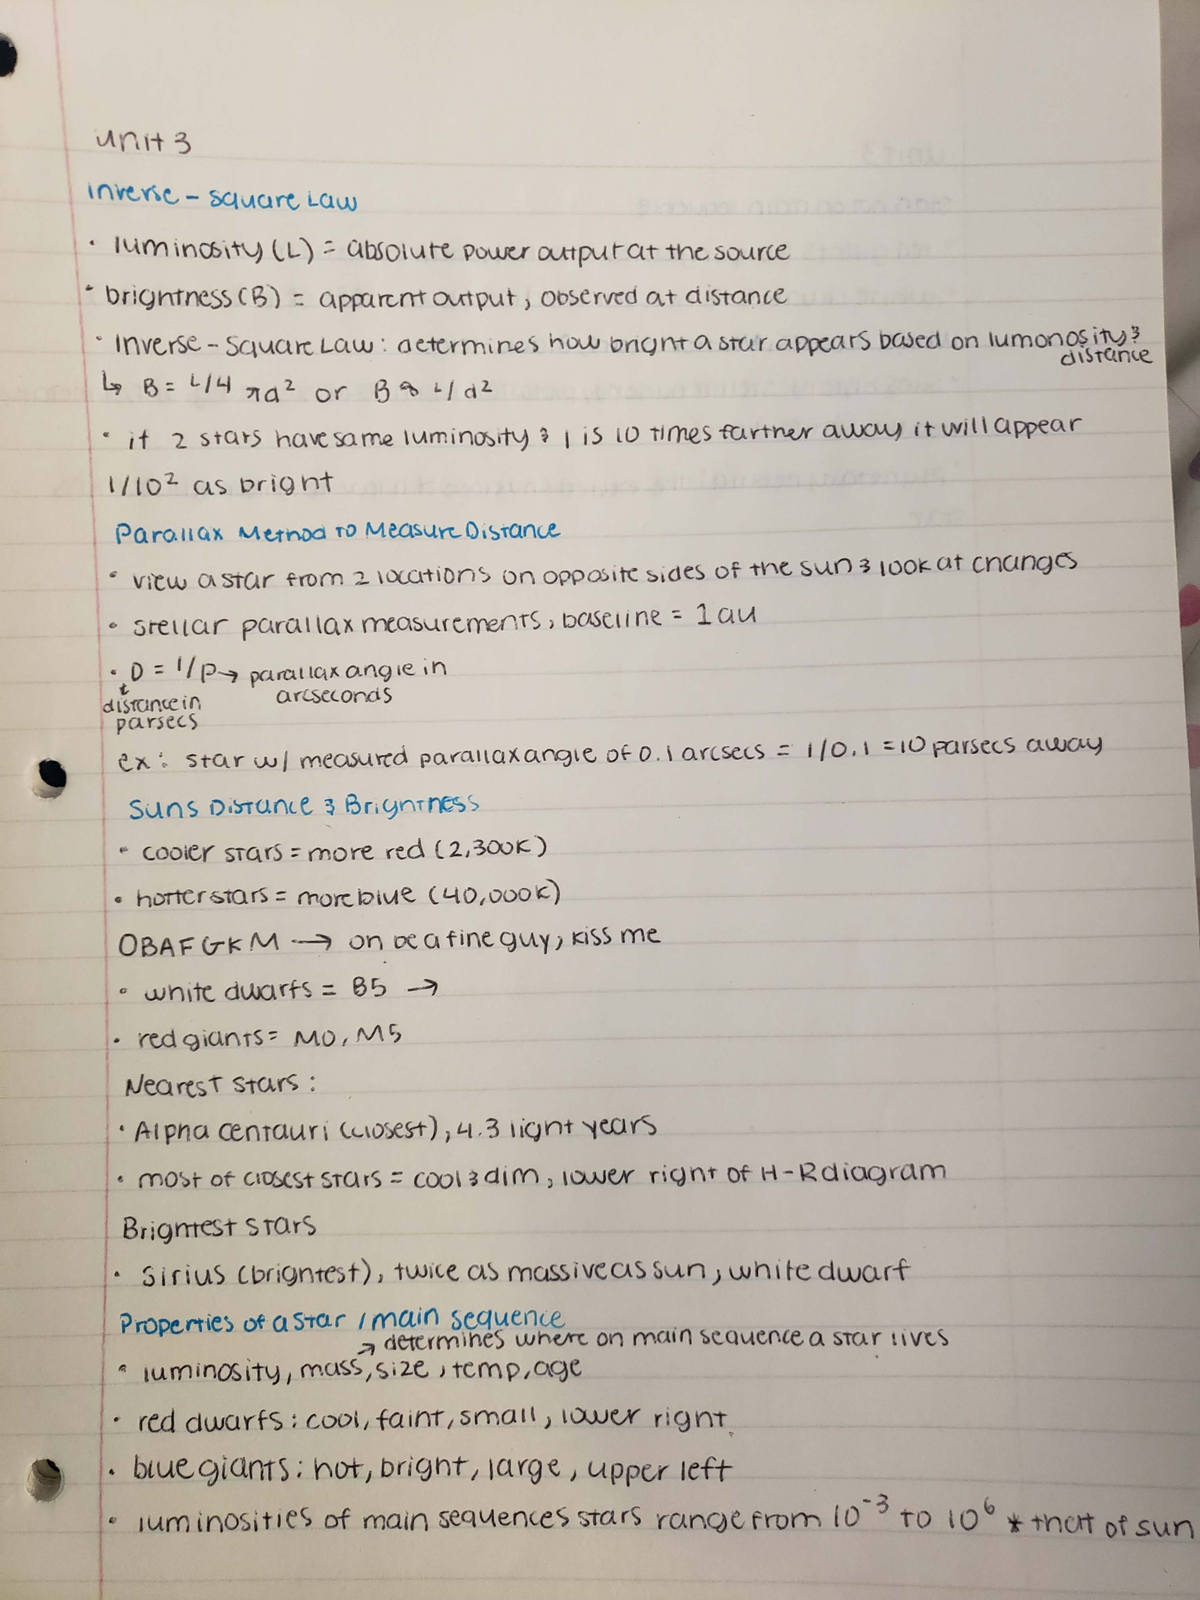 unit 3
Inverse - Square Law
• luminosity (L) = absolute power output at the source
• brightness (B) = apparent output, observed at distance
• Inverse - Square Law : determines how bright a star appears based on lumonosity &
distance
↳ B = L/4 πd² or B ∝ L/d²
• if 2 stars have same luminosity & 1 is 10 times farther away it will appear
1/10² as bright
Parallax Method to Measure Distance
• view a star from 2 locations on opposite sides of the sun & look at changes
• stellar parallax measurements, baseline = 1 au
• D = 1/p → parallax angle in
arcseconds
distance in
parsecs
ex: star w/ measured parallax angle of 0.1 arcsecs = 1/0.1 = 10 parsecs away
Suns Distance & Brightness
• cooler stars = more red (2,300K)
• hotter stars = more blue (40,000K)
OBAFGKM → oh be a fine guy, kiss me
• white dwarfs = B5 →
• red giants = M0, M5
Nearest stars :
• Alpha centauri (closest), 4.3 light years
• most of closest stars = cool & dim, lower right of H-R diagram
Brightest stars
• Sirius (brightest), twice as massive as sun, white dwarf
Properties of a star / main sequence
→ determines where on main sequence a star lives
• luminosity, mass, size, temp, age
• red dwarfs : cool, faint, small, lower right
• blue giants : hot, bright, large, upper left
• luminosities of main sequences stars range from 10⁻³ to 10⁶ * that of sun